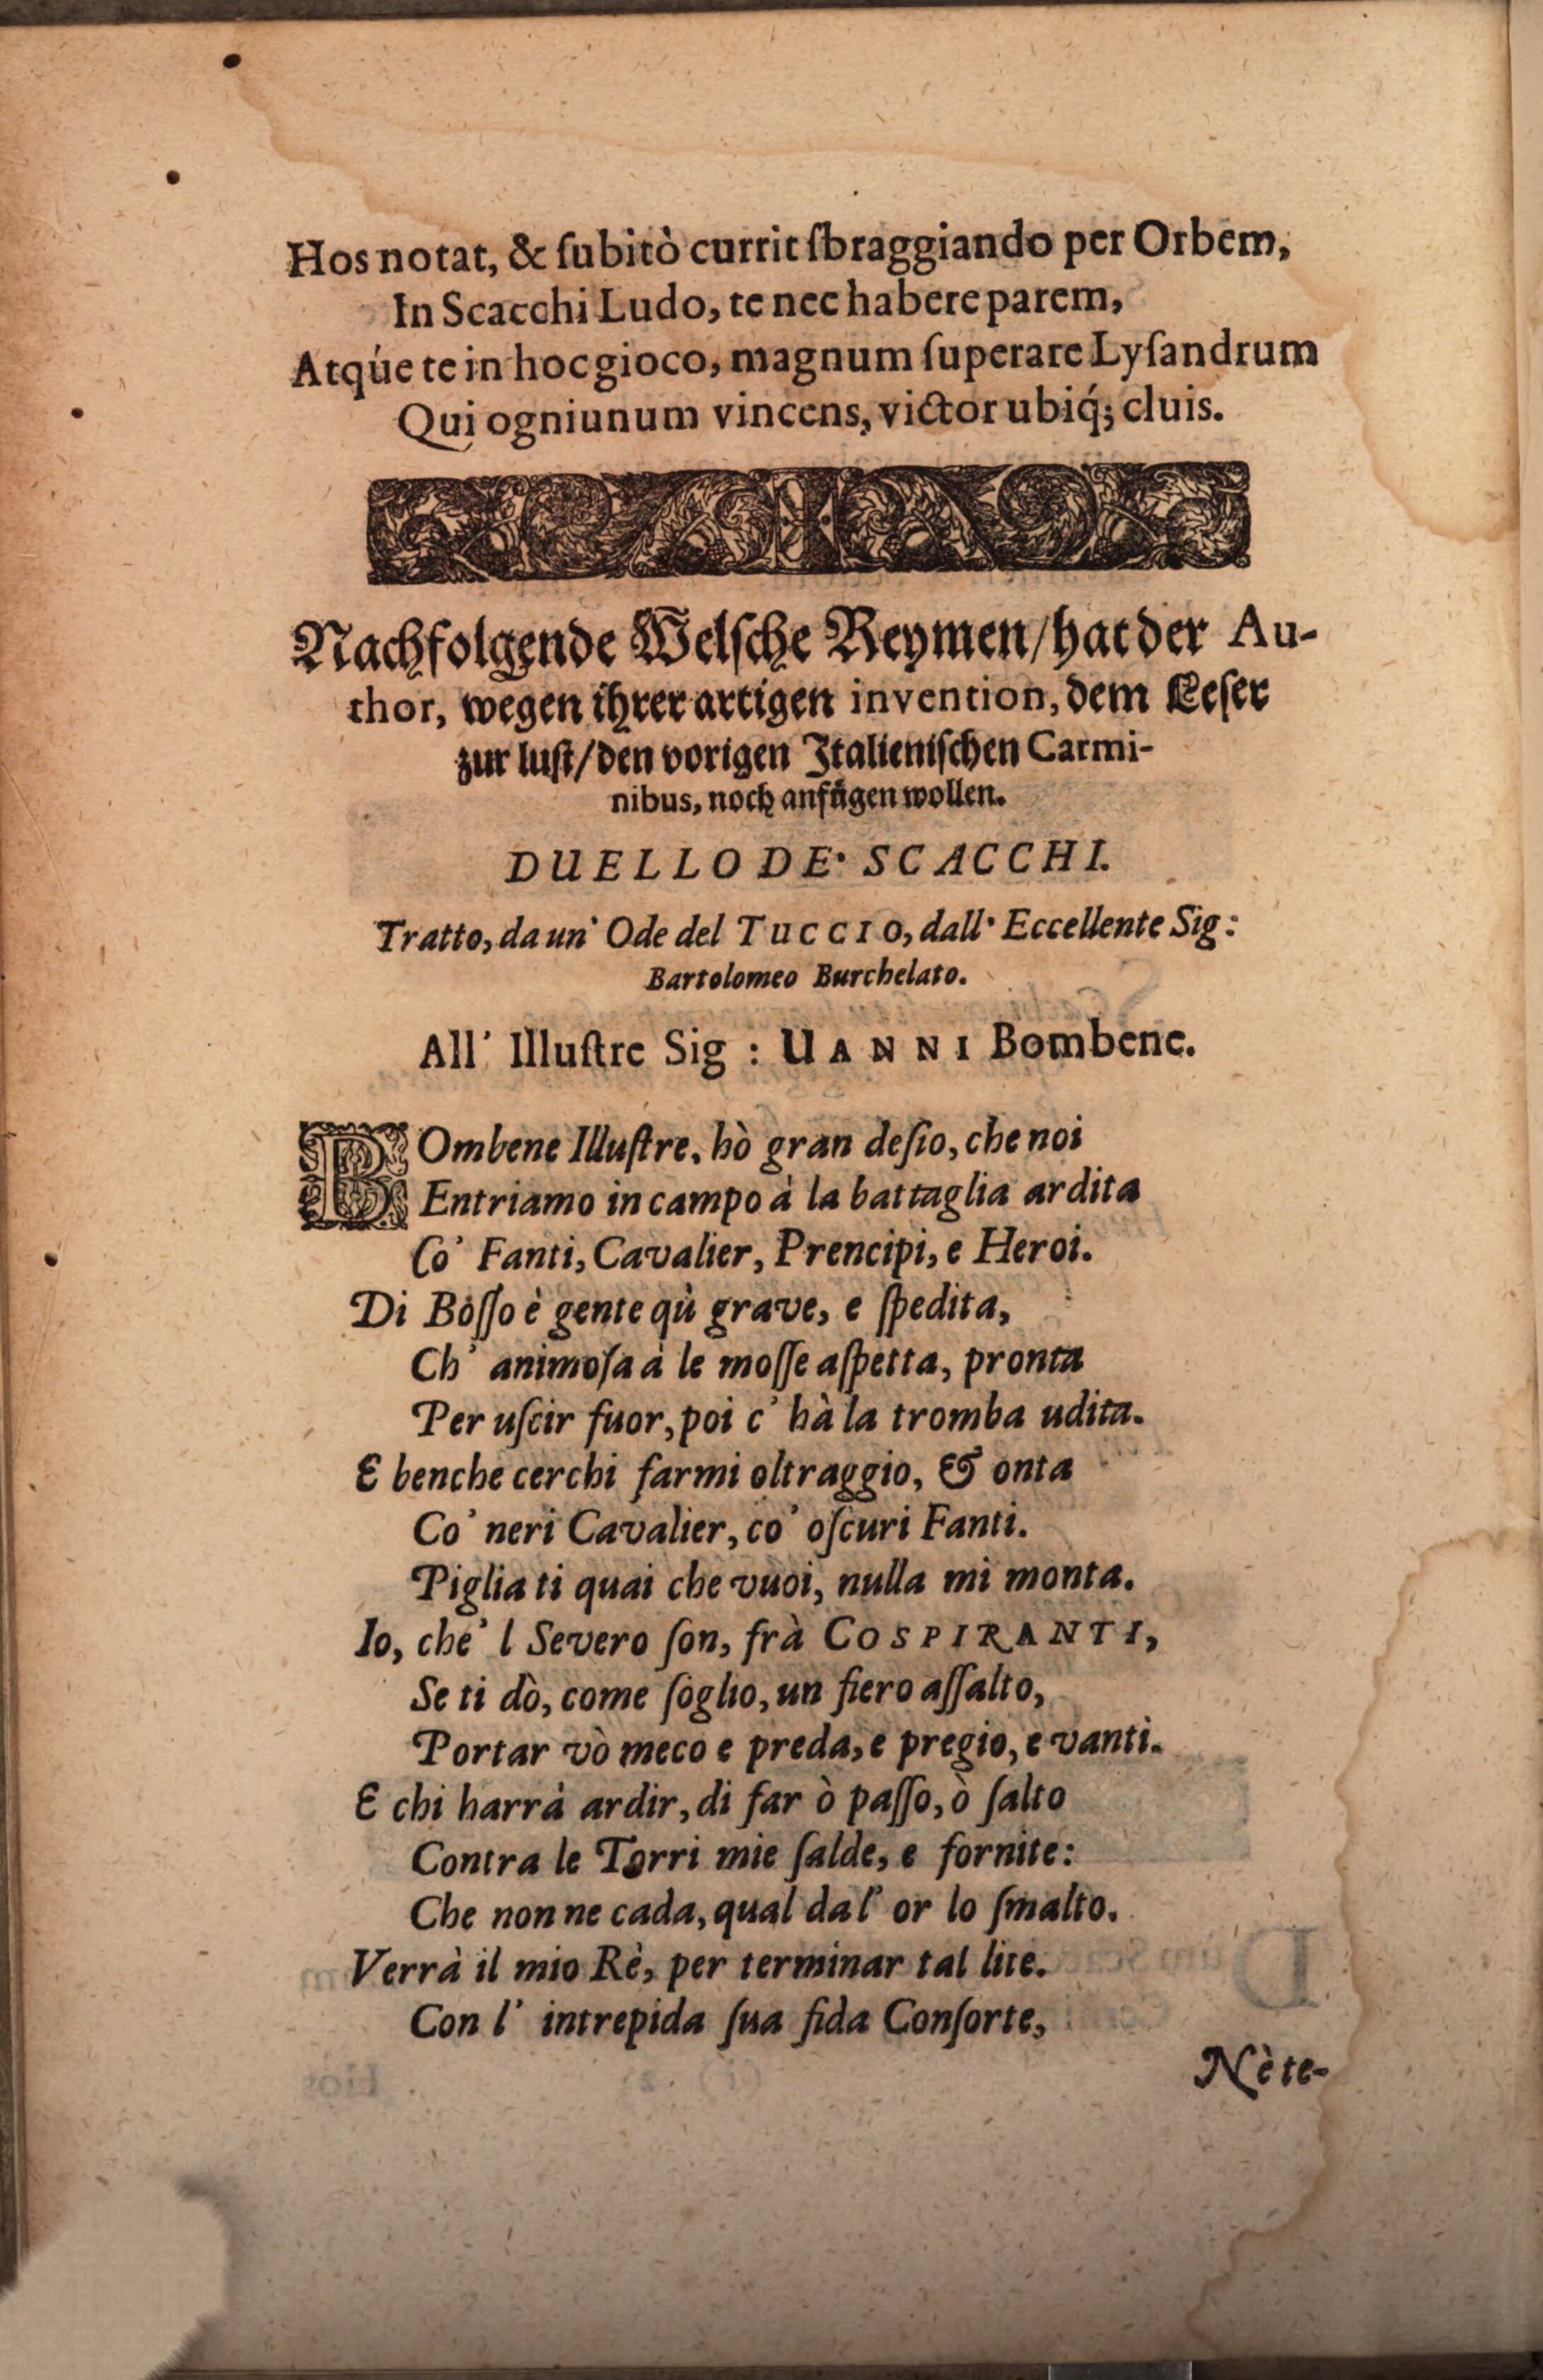 Hos notat, & ſubitò currit ſbraggiando per Orbem,
In Scacchi Ludo, te nec habere parem,
Atq́ue te in hoc gioco, magnum ſuperare Lyſandrum
Qui ogniunum vincens, victor ubiq́; cluis.
Nachfolgende Welſche Reymen/ hat der Au-
thor, wegen ihrer artigen invention, dem Leſer
zur luſt/ den vorigen Italieniſchen Carmi-
nibus, noch anfügen wollen.
DUELLO DE' SCACCHI.
Tratto, da un' Ode del TUCCIO, dall' Eccellente Sig:
Bartolomeo Burchelato.
All' Illuſtre Sig: UANNI Bombene.
BOmbene Illuſtre, hò gran deſio, che noi
Entriamo in campo à la battaglia ardita
Co' Fanti, Cavalier, Prencipi, e Heroi.
Di Boſſo è gente quì grave, e ſpedita,
Ch' animoſa à le moſſe aſpetta, pronta
Per uſcir fuor, poi c' hà la tromba udita.
E benche cerchi farmi oltraggio, & onta
Co' neri Cavalier, co' oſcuri Fanti.
Piglia ti quai che vuoi, nulla mi monta.
Io, che' l Severo ſon, frà COSPIRANTI,
Se ti dò, come ſoglio, un fiero aſſalto,
Portar vò meco e preda, e pregio, e vanti.
E chi harrà ardir, di far ò paſſo, ò ſalto
Contra le Torri mie ſalde, e fornite:
Che non ne cada, qual dal' or lo ſmalto.
Verrà il mio Rè, per terminar tal lite.
Con l' intrepida ſua fida Conſorte,
Nè te-